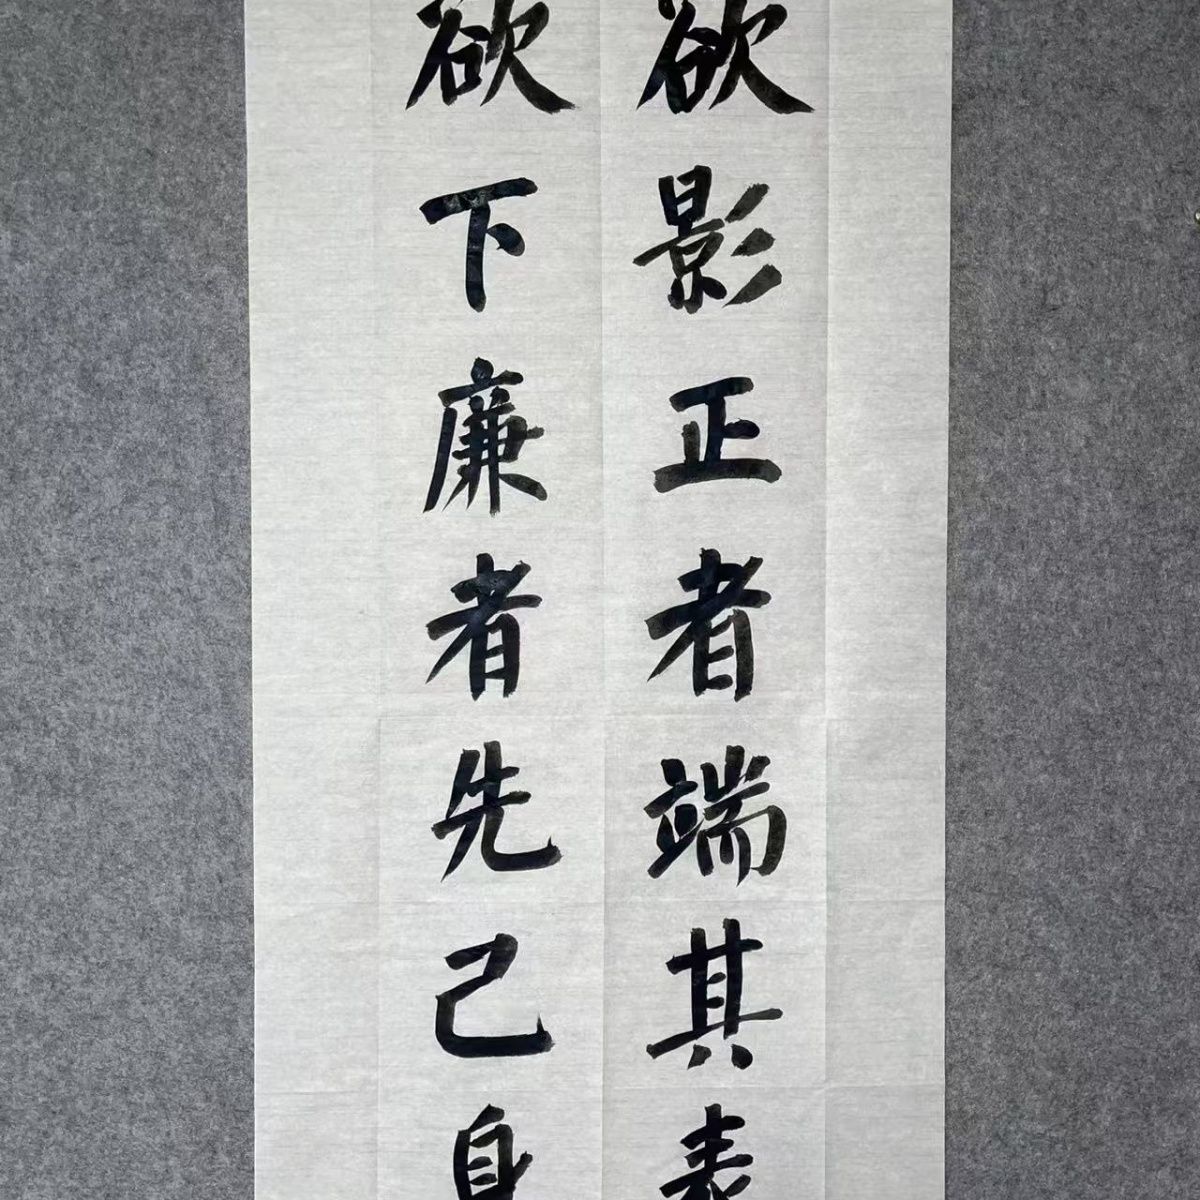 欲影正者端其表
欲下廉者先己身